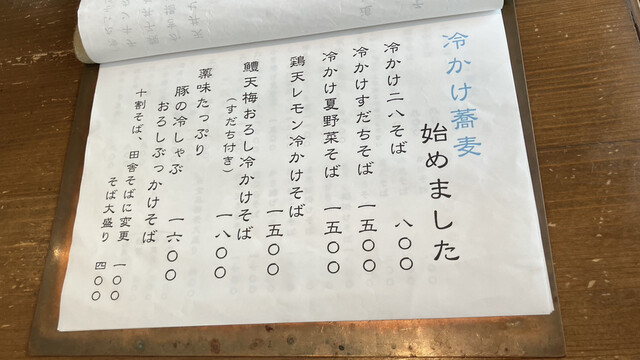 冷かけ蕎麦
始めました
冷かけ二八そば 八〇〇
冷かけすだちそば 一五〇〇
冷かけ夏野菜そば 一五〇〇
鶏天レモン冷かけそば 一五〇〇
鱧天梅おろし冷かけそば 一八〇〇
(すだち付き)
薬味たっぷり
豚の冷しゃぶ
おろしぶっかけそば 一六〇〇
十割そば、田舎そばに変更 一〇〇
そば大盛り 四〇〇